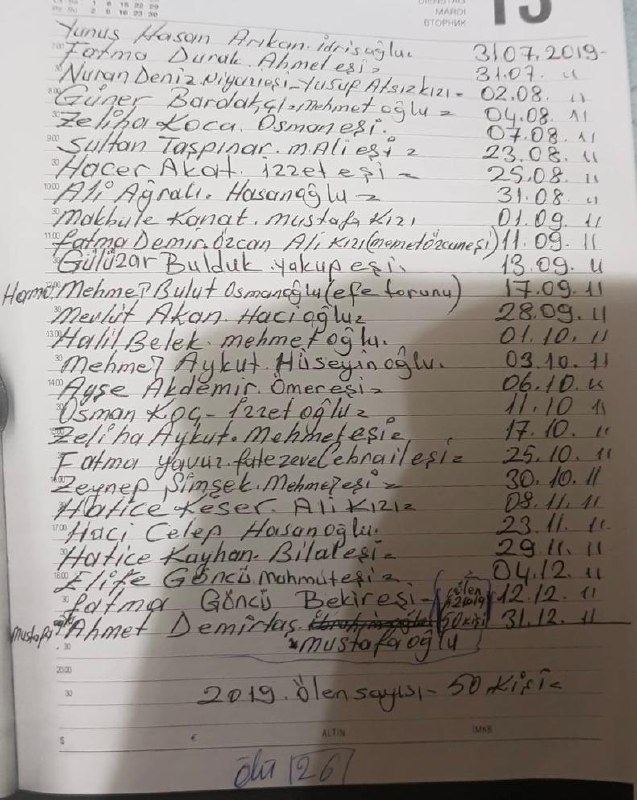 MARDI
ВТОРНИК
15
Yunus Hasan Arıkan. idrisoğlu. 31.07.2019-
Fatma Durak. Ahmet eşi = 31.07. "
Nuran Deniz. Niyazieşi - Yusuf Atsızkızı - 02.08. "
Güner Bardakçı = Mehmet oğlu = 04.08. "
Zeliha Koca. Osman eşi. 07.08. "
Sultan Taşpınar. m.Ali eşi = 23.08. "
Hacer Akat. izzet eşi = 25.08. "
Ali Ağralı. Hasanoğlu = 31.08 "
Makbule Kanat. Mustafa Kızı 01.09. "
fatma Demir. Özcan Ali Kızı (memetözcaneşi) 11.09. "
Gülüzar Bulduk. yakup eşi. 13.09. "
Mehmet Bulut Osmanoğlu (efe torunu) 17.09. 11
Mevlüt Akan. Hacioğlu = 28.09. 11
Halil Belek. mehmet oğlu. 01.10. 11
Mehmet Aykut. Hüseyin oğlu. 03.10. 11
Ayşe Akdemir. Ömereşi = 06.10. "
Osman Koç - İzzet oğlu = 11.10 11
Zeliha Aykut. Mehmet eşi = 17.10. "
Fatma yavuz. Cebrail eşi = 25.10. 11
Zeynep Şimşek. Mehmet eşi = 30.10. 11
Hatice Keser. Ali Kızı = 08.11. 11
Haci Celep Hasanoğlu. 23.11. 11.
Hatice Kayhan. Bilal eşi = 29.11. 11
Elife Göncü. Mahmut eşi = 04.12. 11
fatma Göncü Bekir eşi - 12.12. 11
ölen
50 kişi
Mustafa Ahmet Demirtaş. 31.12. 11
mustafaoğlu
2019. ölen sayısı - 50 Kişi =
$ € ALTIN IMKB
ölü 26